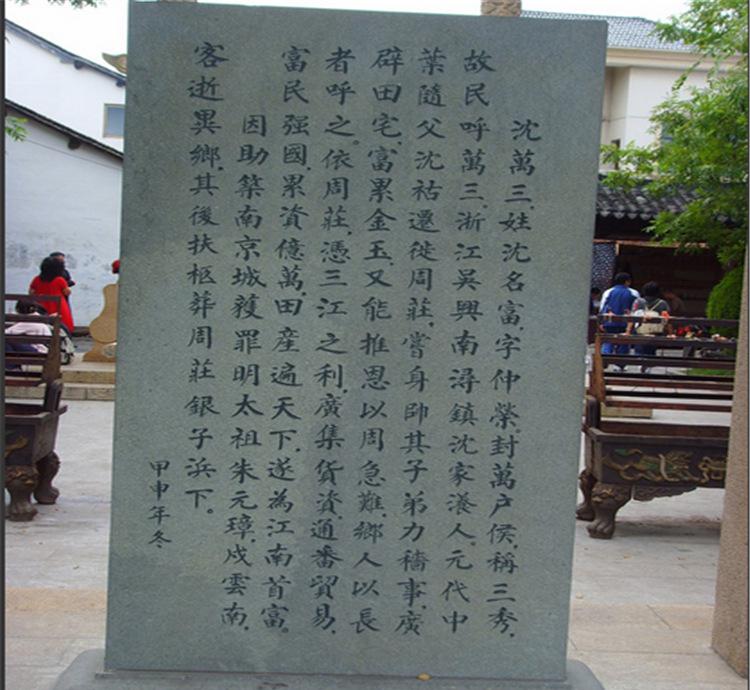 沈萬三，姓沈名富，字仲榮。封萬户侯，稱三秀，
故民呼萬三，浙江吳興南潯鎮沈家漾人。元代中
葉隨父沈祜遷徙周莊，嘗身帥其子弟力穡事，廣
辟田宅，富累金玉，又能推恩以周急難，鄉人以長
者呼之。依周莊，憑三江之利，廣集貨資，通番貿易，
富民强國，累資億萬，田産遍天下，遂為江南首富。
因助築南京城獲罪明太祖朱元璋，戍雲南，
客逝異鄉，其後扶柩葬周莊銀子浜下。
甲申年冬